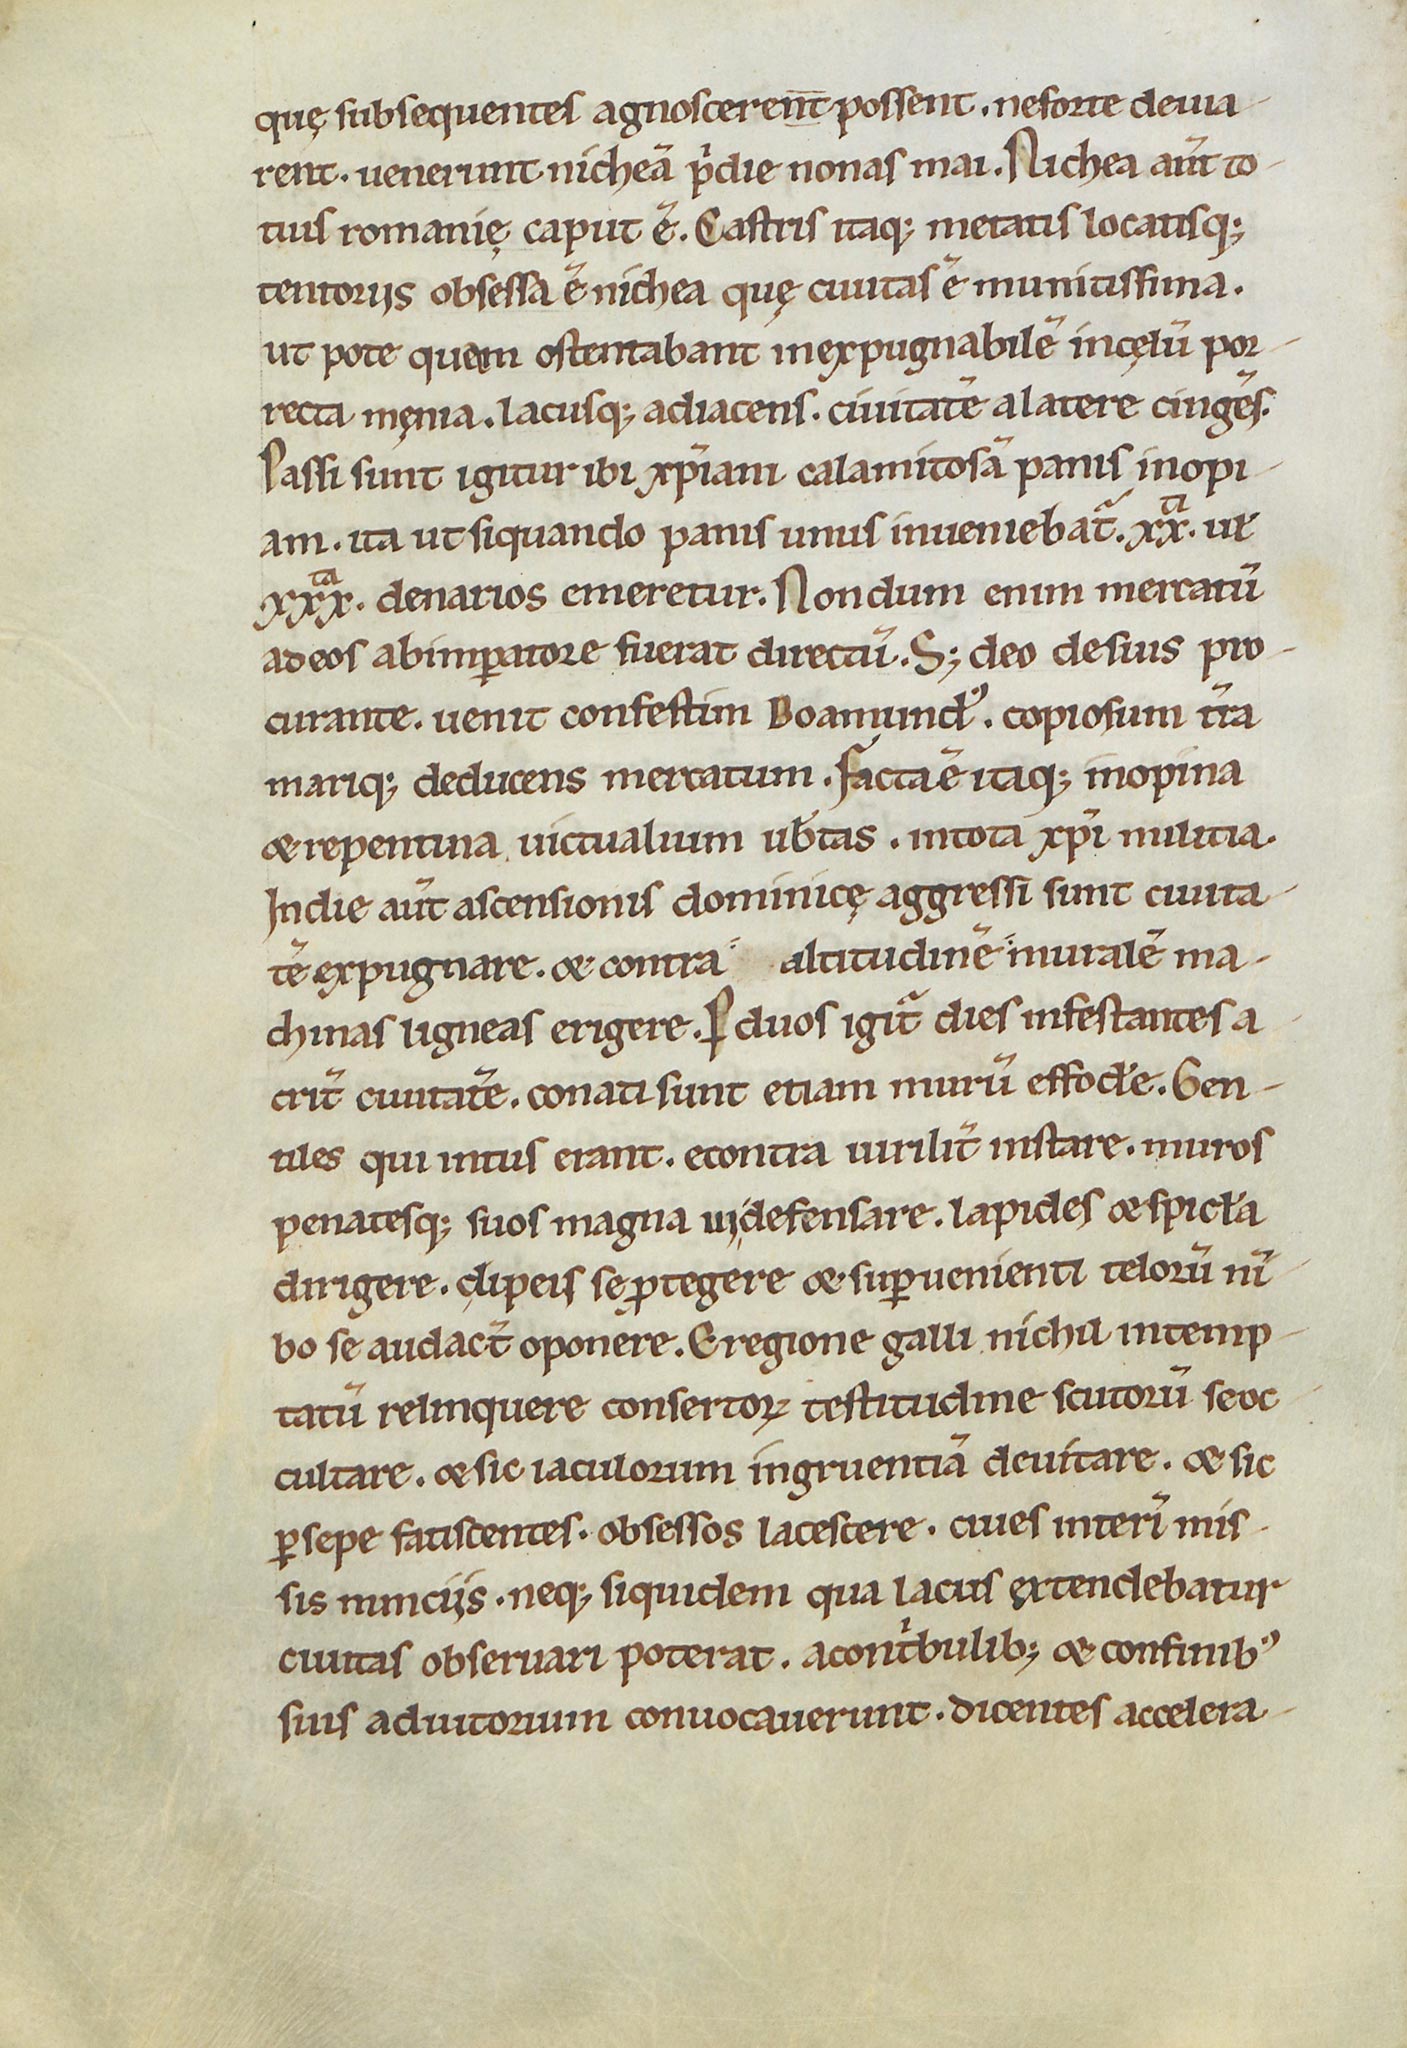 quę subsequentes agnoscerent̅ possent. ne forte deuia-
rent. uenerunt nicheā p̍die nonas mai. Nichea aūt to-
tius romanię caput ē. Castris itaq; metatis locatisq;
tentoriis obsessa ē nichea quę ciuitas ē munitissima.
ut pote quem ostentabant inexpugnabilē in cęlū por-
recta męnia. lacusq; adiacens. ciuitatē a latere cingēs.
Passi sunt igitur ibi xp̄iani calamitosā panis inopi-
am. ita ut siquando panis unus inueniebat̃. xx̃. uł
xxx̃. denarios emeretur. Nondum enim mercatū
ad eos ab imꝑatore fuerat directū. S; deo de suis pro-
curante. uenit confestim Boamundꝰ. copiosum t̄ra
mariq; deducens mercatum. Facta ē itaq; inopina
& repentina uictualium ub̄tas. in tota xp̄i militia.
In die aūt ascensionis dominicę aggressi sunt ciuita-
tē expugnare. & contra altitudinē muralē ma-
chinas ligneas erigere. Ꝑ duos igit̃ dies infestantes a-
crit̄ ciuitatē. conati sunt etiam murū effod̄e. Gen-
tiles qui intus erant. econtra uirilit̄ instare. muros
penatesq; suos magna ui defensare. lapides & spicl̄a
dirigere. clipeis se ꝓtegere & suꝑuenienti telorū nī-
bo se audact̄ oponere. E regione galli nichil intemp-
tatū relinquere consertoꝝ testitudine scutorū se oc-
cultare. & sic iaculorum ingruentiā deuitare. & sic
ꝑsepe fatiscentes. obsessos lacescere. ciues interī mis-
sis nunciis. neq; siquidem qua lacus extendebatur
ciuitas obseruari poterat. a cont̍bulib; & confinibꝰ
suis adiutorium conuocauerunt. dicentes accelera-